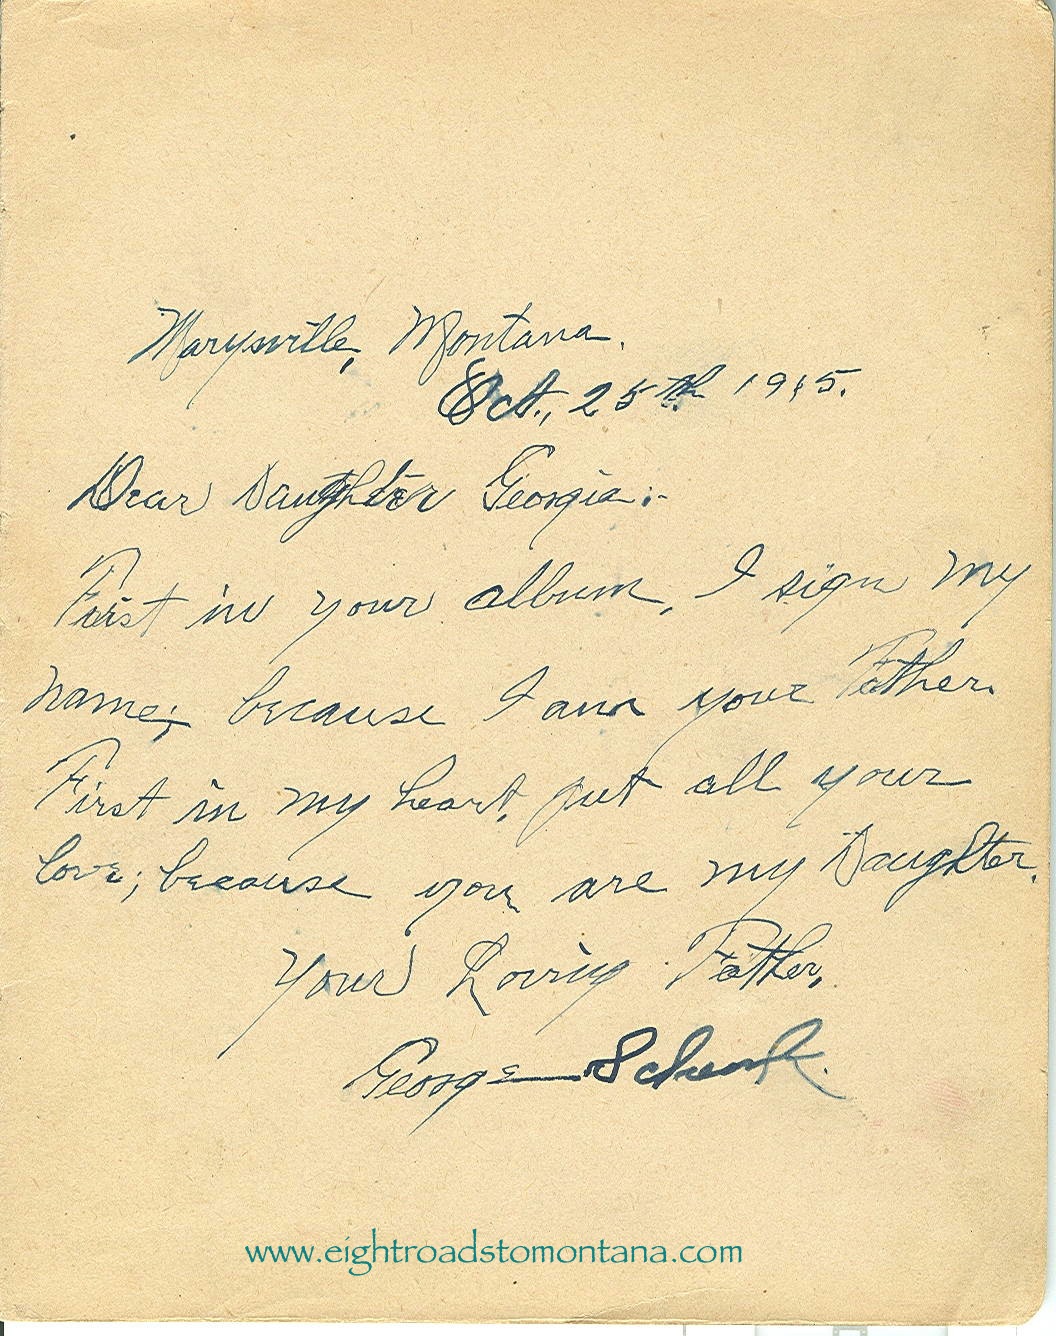 Marysville, Montana.
Oct., 25th 1915.
Dear Daughter Georgia:-
First in your album, I sign my
name; because I am your Father.
First in my heart, put all your
love; because you are my Daughter.
Your Loving Father,
George Schenk.
www.eightroadstomontana.com